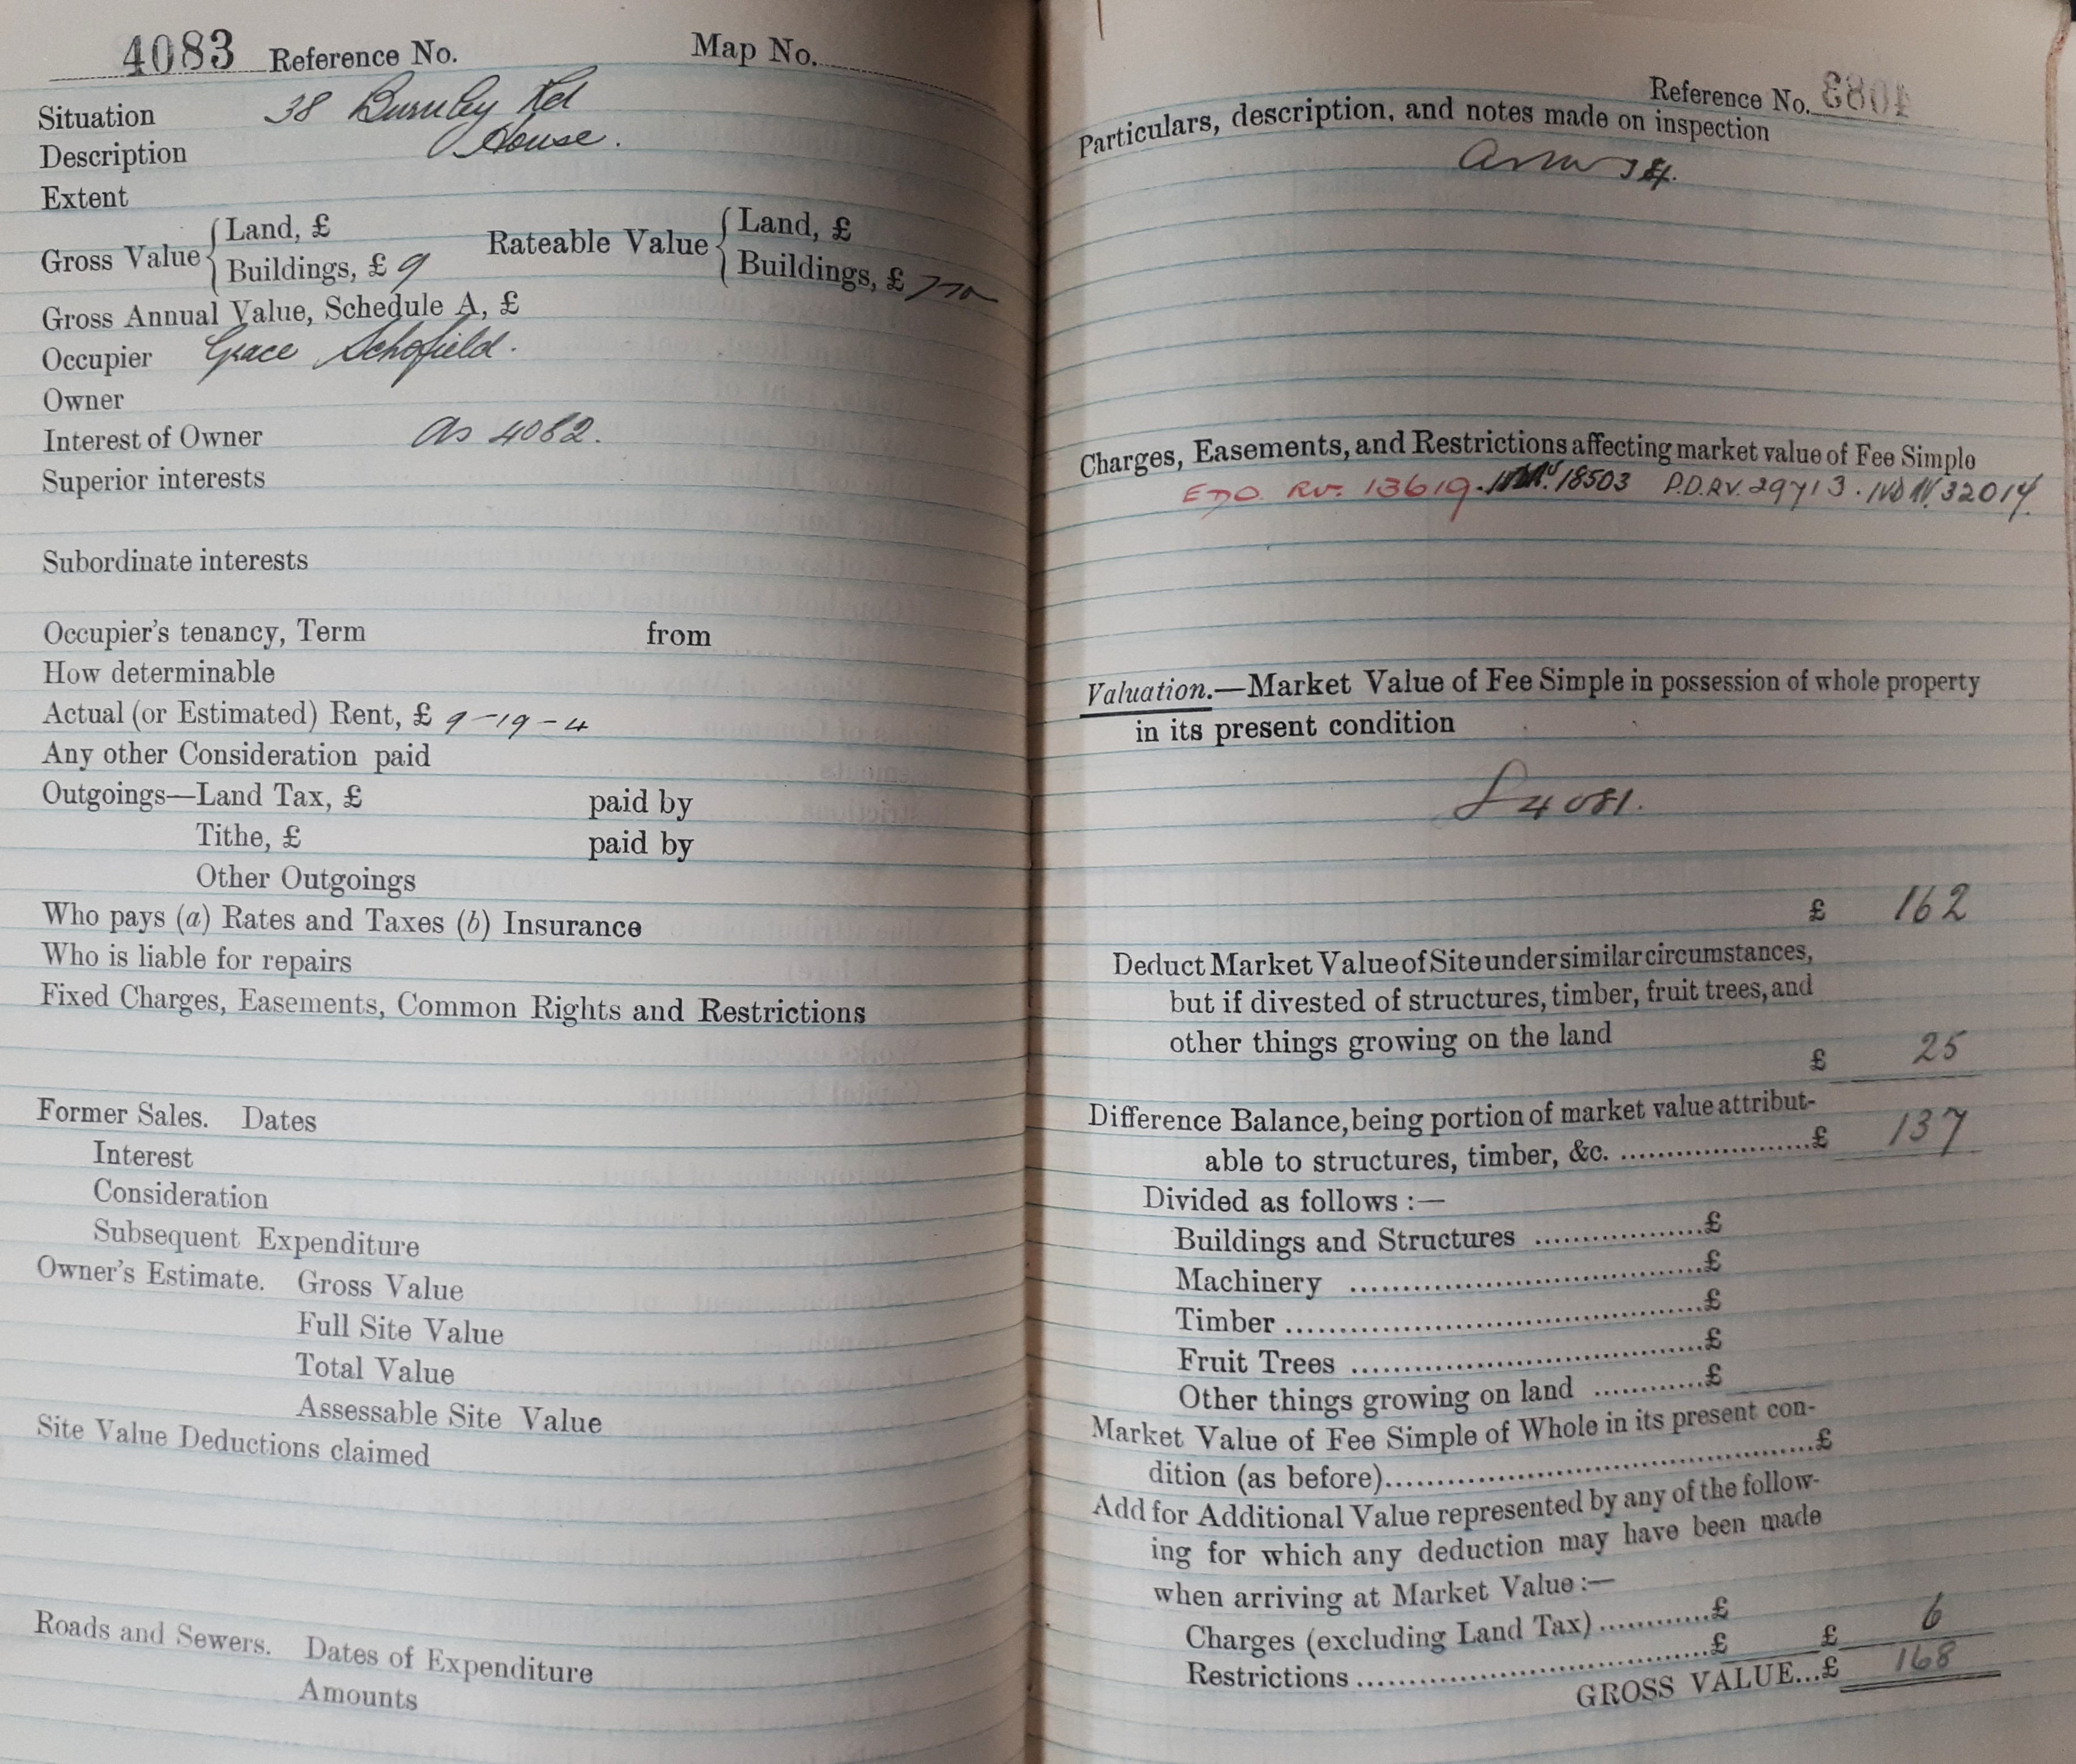 4083 Reference No. Map No.
Situation 38 Burnley Rd
Description House.
Extent
Gross Value { Land, £
Buildings, £ 9
Rateable Value { Land, £
Buildings, £
Gross Annual Value, Schedule A, £
Occupier Grace Schofield.
Owner
Interest of Owner as 4082.
Superior interests
Subordinate interests
Occupier's tenancy, Term from
How determinable
Actual (or Estimated) Rent, £ 9-19-4
Any other Consideration paid
Outgoings—Land Tax, £ paid by
Tithe, £ paid by
Other Outgoings
Who pays (a) Rates and Taxes (b) Insurance
Who is liable for repairs
Fixed Charges, Easements, Common Rights and Restrictions
Former Sales. Dates
Interest
Consideration
Subsequent Expenditure
Owner's Estimate. Gross Value
Full Site Value
Total Value
Assessable Site Value
Site Value Deductions claimed
Roads and Sewers. Dates of Expenditure
Amounts
Reference No. 4083
Particulars, description, and notes made on inspection
Charges, Easements, and Restrictions affecting market value of Fee Simple
Rv. 13619. 18503 P.D.RV. 29713. 32014.
Valuation.—Market Value of Fee Simple in possession of whole property
in its present condition
4081.
£ 162
Deduct Market Value of Site under similar circumstances,
but if divested of structures, timber, fruit trees, and
other things growing on the land
£ 25
Difference Balance, being portion of market value attribut-
able to structures, timber, &c. ........................£ 137
Divided as follows :—
Buildings and Structures ....................£
Machinery ........................................£
Timber ................................................£
Fruit Trees ........................................£
Other things growing on land ............£
Market Value of Fee Simple of Whole in its present con-
dition (as before)................................................£
Add for Additional Value represented by any of the follow-
ing for which any deduction may have been made
when arriving at Market Value :—
Charges (excluding Land Tax)............£
Restrictions ........................................£ £ 6
GROSS VALUE...£ 168